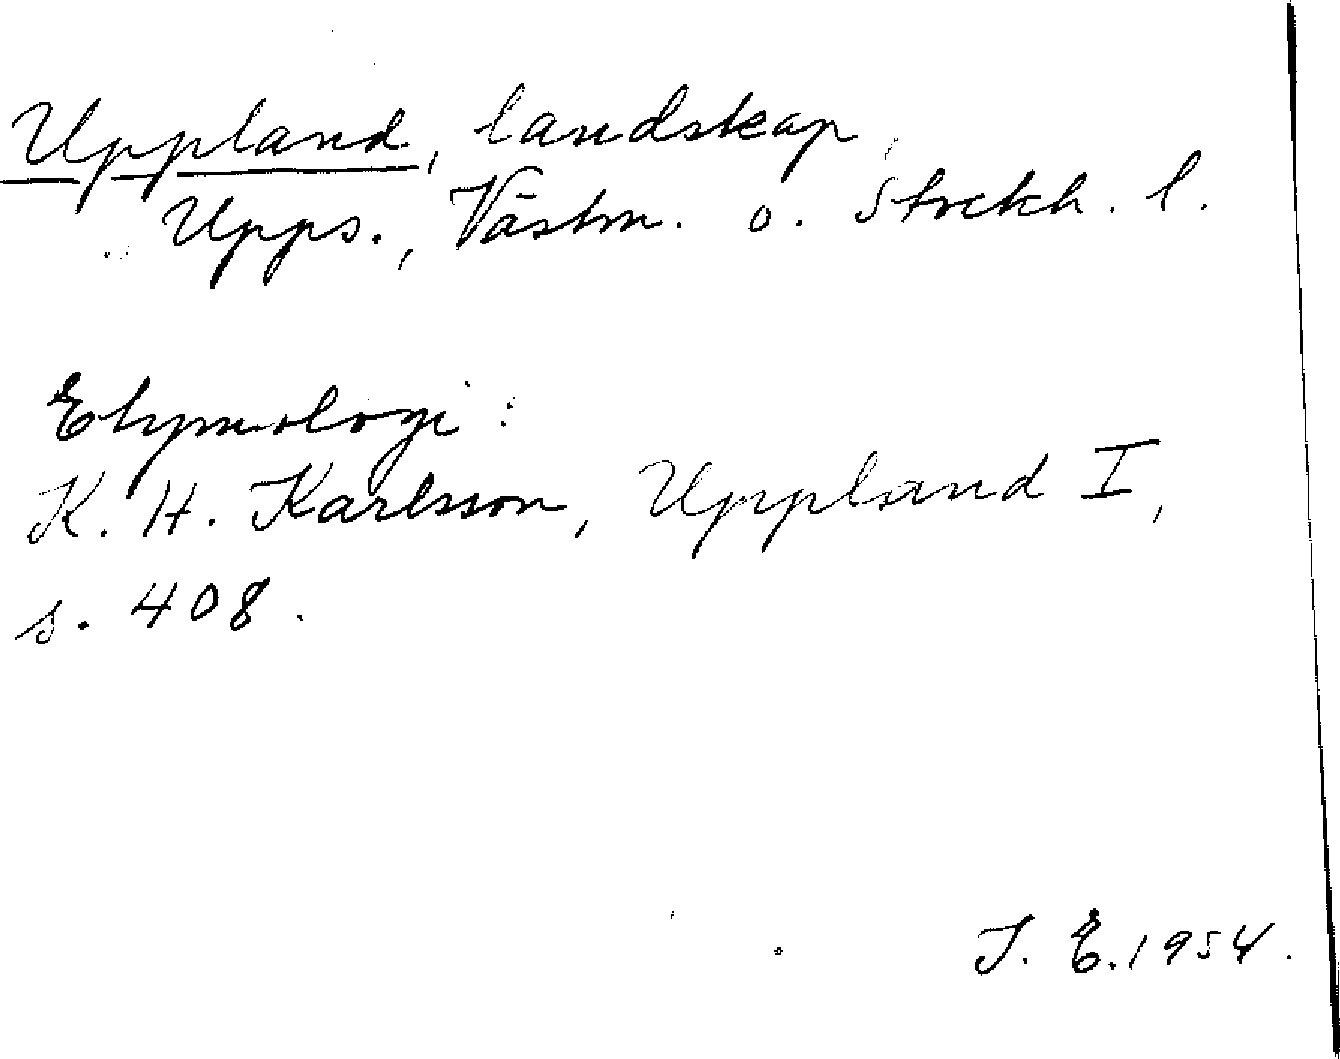 Uppland, landskap,
Upps., Västm. o. Stockh. l.
Etymologi:
K. H. Karlsson, Uppland I,
s. 408.
I. E. 1954.